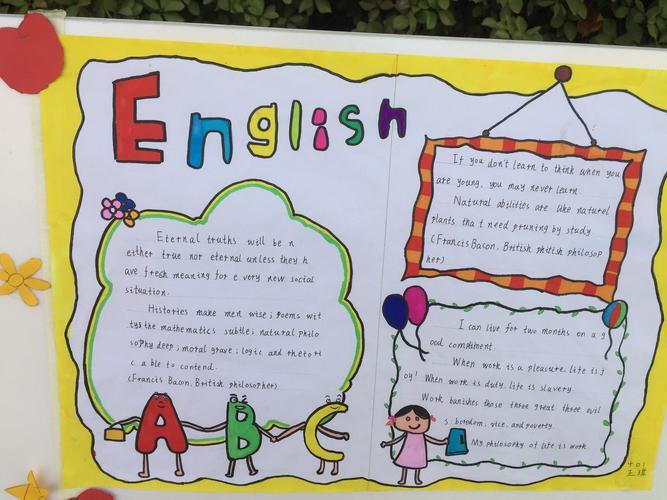 English
Eternal truths will be n
either true nor eternal unless they h
ave fresh meaning for e very new social
situation.
Histories make men wise; poems wit
ty; the mathematics subtle; natural philo
sophy deep; moral grave; logic and rhetori
c able to contend.
(Francis Bacon. British philosopher)
A B C
If you don't learn to think when you
are young, you may never learn.
Natural abilities are like natural
plants tha t need pruning by study
(Francis Bacon. British philosop
her)
I can live for two months on a g
ood compliment.
When work is a pleasure. life is j
oy! When work is duty. life is slavery.
Work banishes those three great three evil
s: boredom, vice, and poverty.
My philosophy of life is work
401